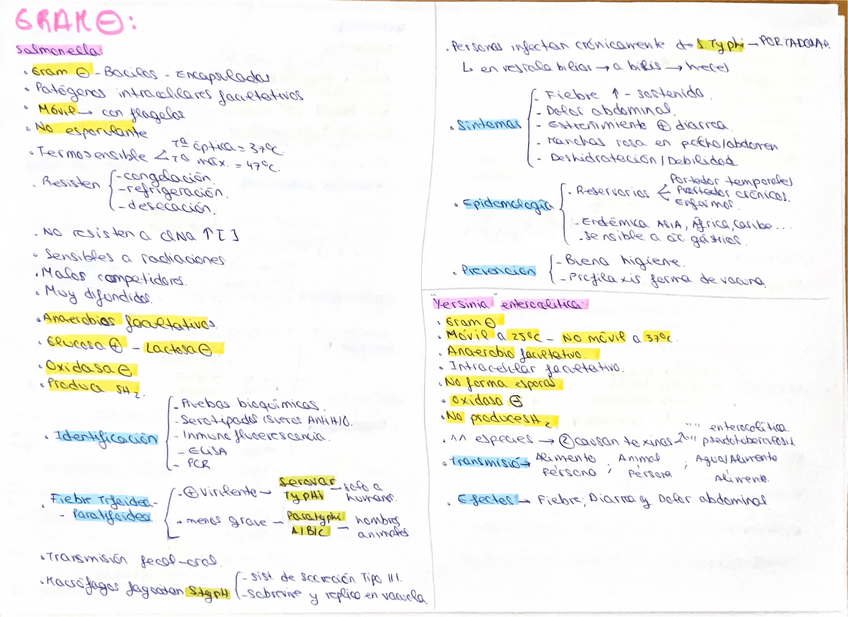 GRAM ⊖:
Salmonella
· Gram ⊖ - Bacilos - Encapsulados
· Patógenos intracelulares facultativos
· Móvil → con flagelos
· No esporulante
· Termosensible < Tª óptica = 37ºC
Tª máx. = 47ºC
· Resisten { - congelación.
- refrigeración.
- desecación.
· No resisten a ClNa ↑ [ ]
· Sensibles a radiaciones
· Malos competidores.
· Muy difundidos.
· Anaerobios facultativos.
· Glucosa ⊕ - Lactosa ⊖
· Oxidasa ⊖
· Produce SH2.
· Identificación { - Pruebas bioquímicas.
- Serotipados (sueros Anti H/O.
- Inmunofluorescencia.
- ELISA
- PCR
· Fiebre Tifoidea -
- Paratifoidea
- ⊕ virulente → Serovar Typhi → solo a humanos.
· menos grave → Paratyphi A/B/C → hombres animales
· Transmisión fecal-oral.
· Macrófagos fagocitan S typH { - Sist. de secreción Tipo III.
- Sobrevive y replica en vacuola.
· Personas infectan crónicamente de S. Typhi → PORTADORAS.
↳ en vesícula biliar → a bilis → heces
· Síntomas { - Fiebre ↑ - sostenida.
- Dolor abdominal.
- Estreñimiento ⊕ diarrea.
- manchas rosa en pecho/abdomen
- Deshidratación/Debilidad
· Epidemología { · Reservorios < Portador temporales
Portador crónicos.
Enfermos.
- Endémica ASIA, África, Caribe...
- Sensible a ác gástricos.
· Prevención { - Buena higiene.
- Profilaxis forma de vacuna.
Yersinia enterocolitica:
· Gram ⊖
· Móvil a 25ºC - NO MÓVIL a 37ºC.
· Anaerobio facultativo.
· Intracelular facultativo.
· No forma esporas
· oxidasa ⊖
· No produce SH2
· 11 especies → ② causan toxinas < "" enterocolitica.
"" pseudotuberculosis
· Transmisión → Alimento Persona ; Animal Persona ; Agua/Alimento Alimento.
· Efectos → Fiebre, Diarrea y Dolor abdominal